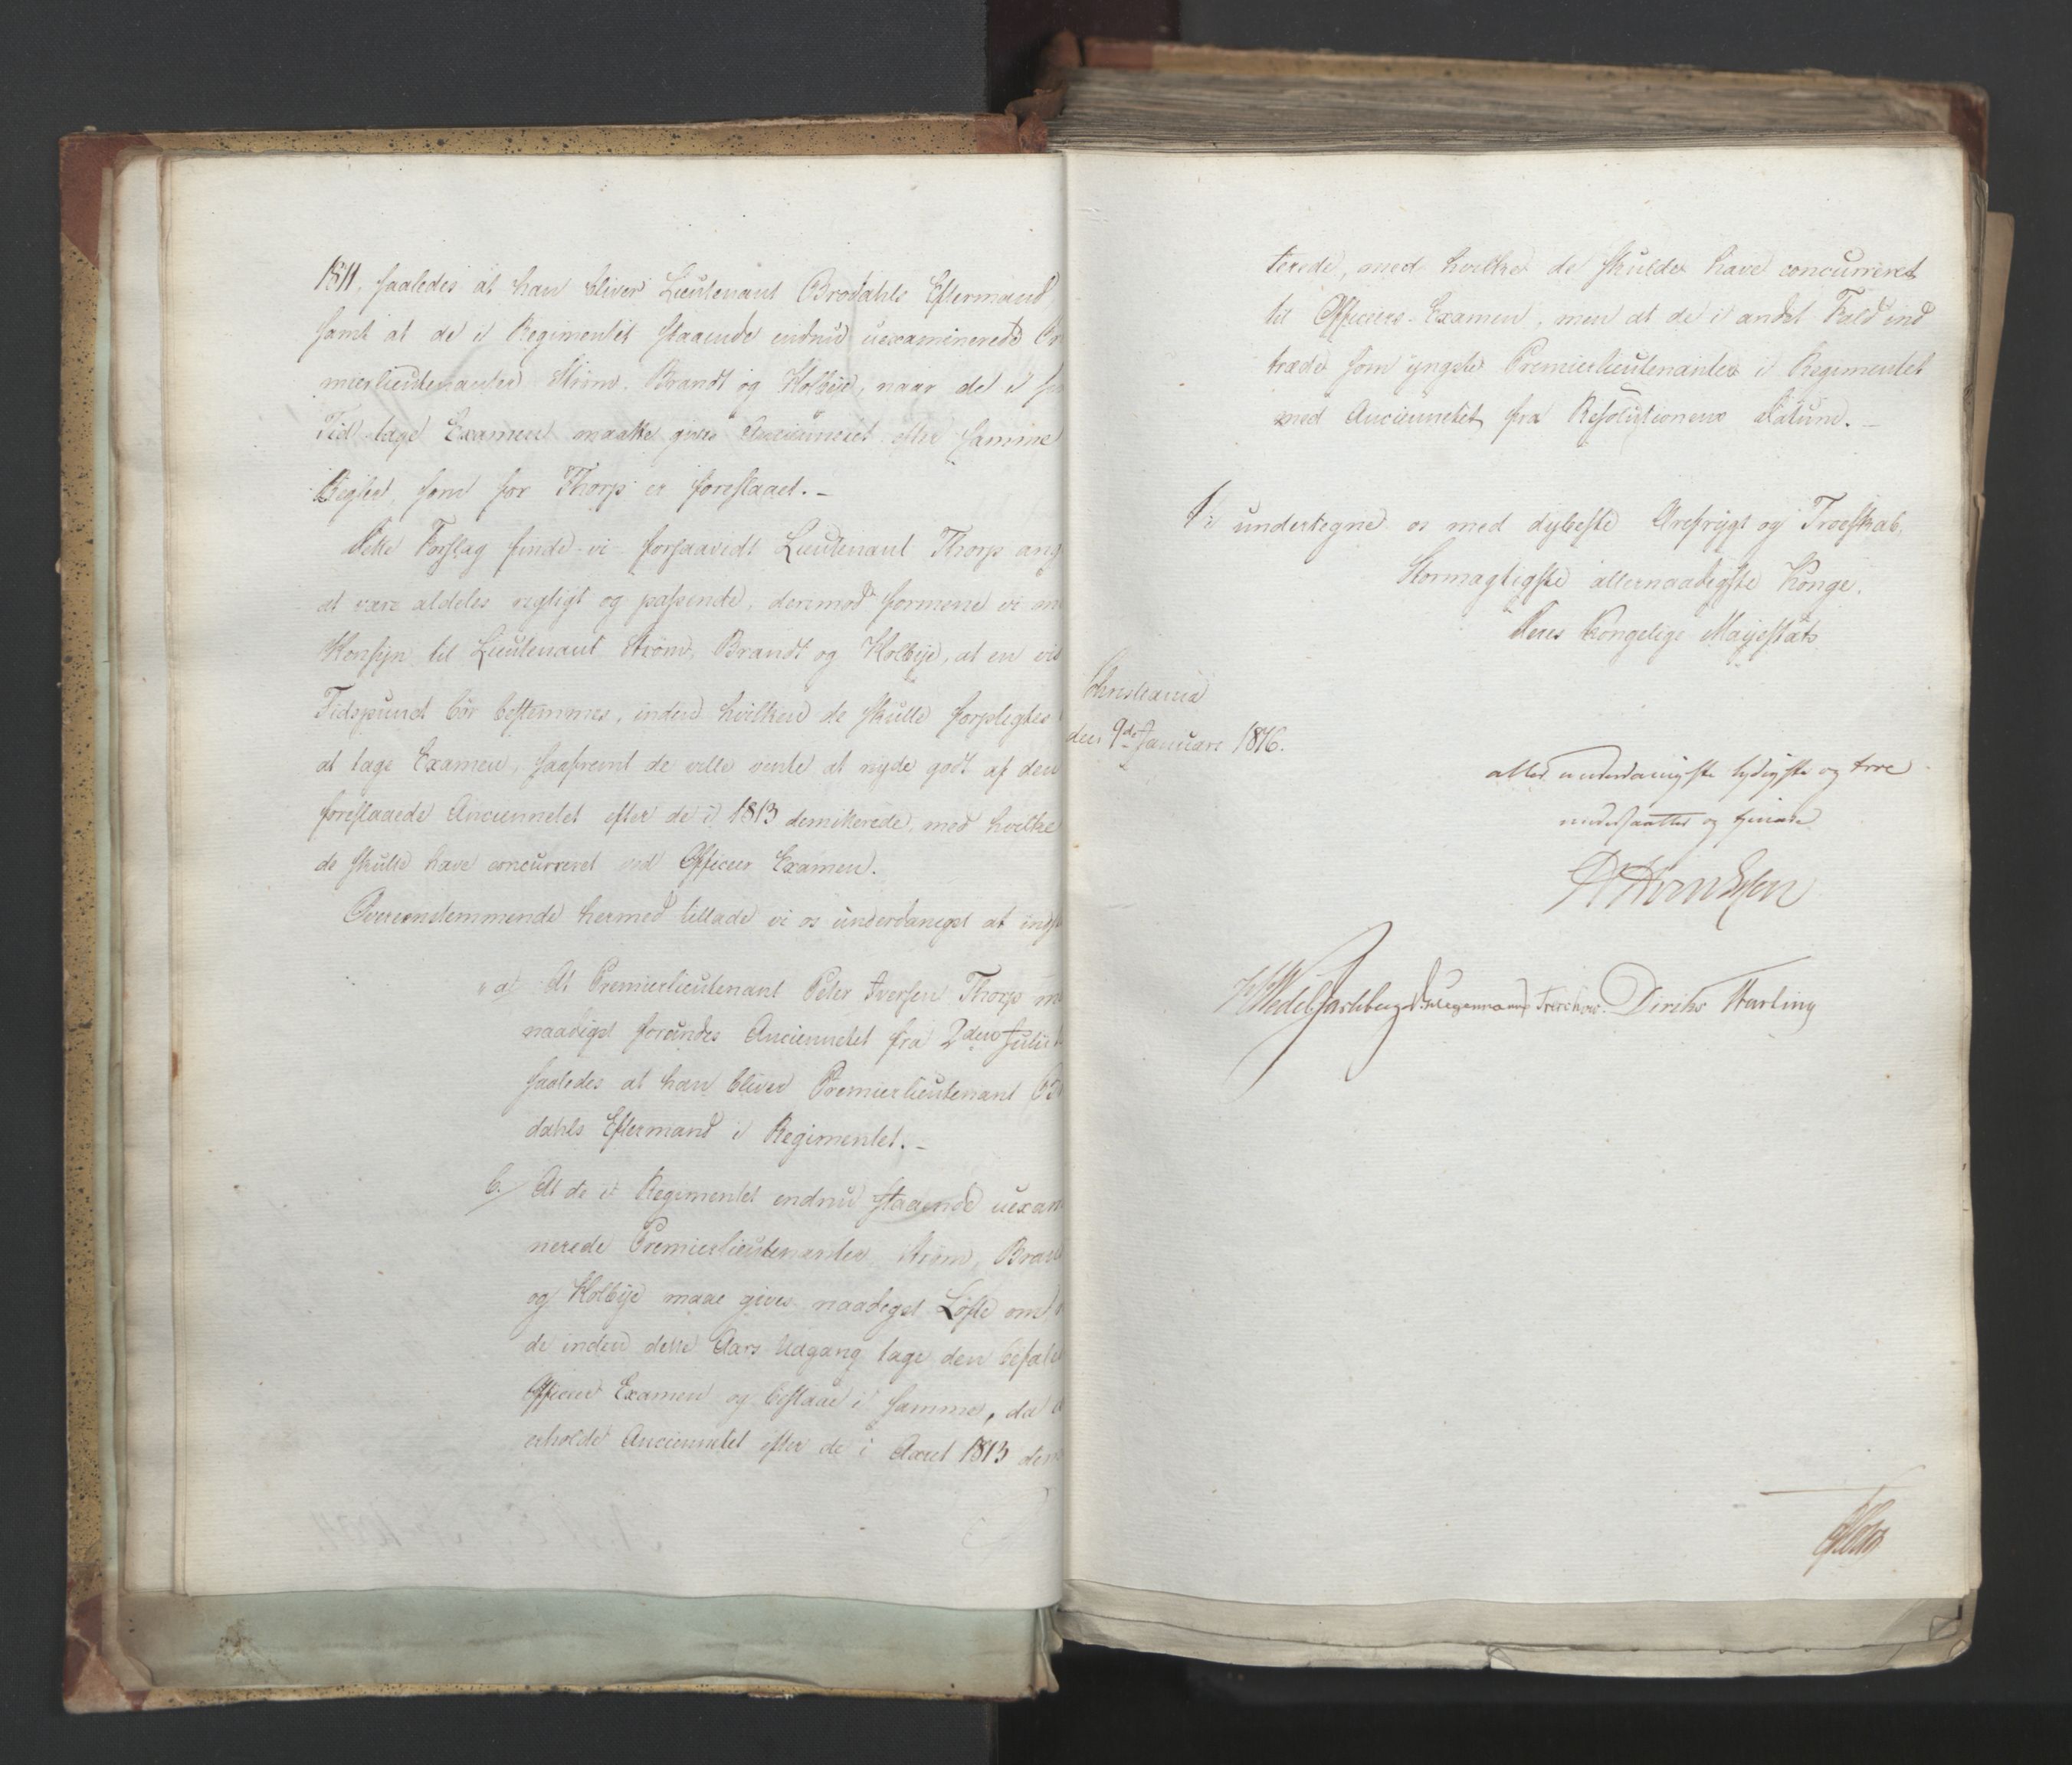 1811, saaledes at han bliver Lieutenant Brodahls Eftermand,
samt at de i Regimentet staaende endnu uexaminerede Pr
mierlieutenanter Strøm, Brandt og Kolbye, naar de i
Tid tage Examen maatte gives Anciennetet efter samme
Regler, som for Thorp er foreslaaet. -
Dette Forslag finde vi forsaavidt Lieutenant Thorp ang
at være aldeles rigtigt og passende, derimod formene vi
Hensyn til Lieutenant Strøm, Brandt og Kolbye, at en vis
Tidspunct bør bestemmes, inden hvilken de skulle forpligtes
at tage Examen, saafremt de ville vente at nyde godt af den
foreslaaede Anciennetet efter de i 1813 demiterede, med hvilke
de skulde have concurreret ved Officeer Examen.
Overeenstemmende hermed tillade vi os underdanigst at inds
a) At Premierlieutenant Peter Iversen Thorp m
naadigst forundes Anciennetet fra 2den Julii
saaledes at han bliver Premierlieutenant Br
dahls Eftermand i Regimentet. -
b.) At de i Regimentet endnu staaende uexam
nerede Premierlieutenanter Strøm, Brand
og Kolbye maae gives naadigst Løfte om
de inden dette Aars Udgang tage den befale
Officeer Examen og bestaae i samme, da
erholde Anciennetet efter de i Aaret 1813 dem
terede, med hvilke de skulde have concurreret
til Officeers-Examen, men at de i andet Fald ind
træde som yngste Premierlieutenanter i Regimentet
med Anciennetet fra Resolutionens Datum. -
Vi undertegne os med dybeste Ærefrygt og Troeskab,
Stormægtigste allernaadigste Konge,
Deres Kongelige Majestæts
Christiania
den 9de Januari 1816.
allerunderdanigste lydigste og troe
undersaatter og tjenere
Wedel Jarlsberg Treschow. Diriks Harling